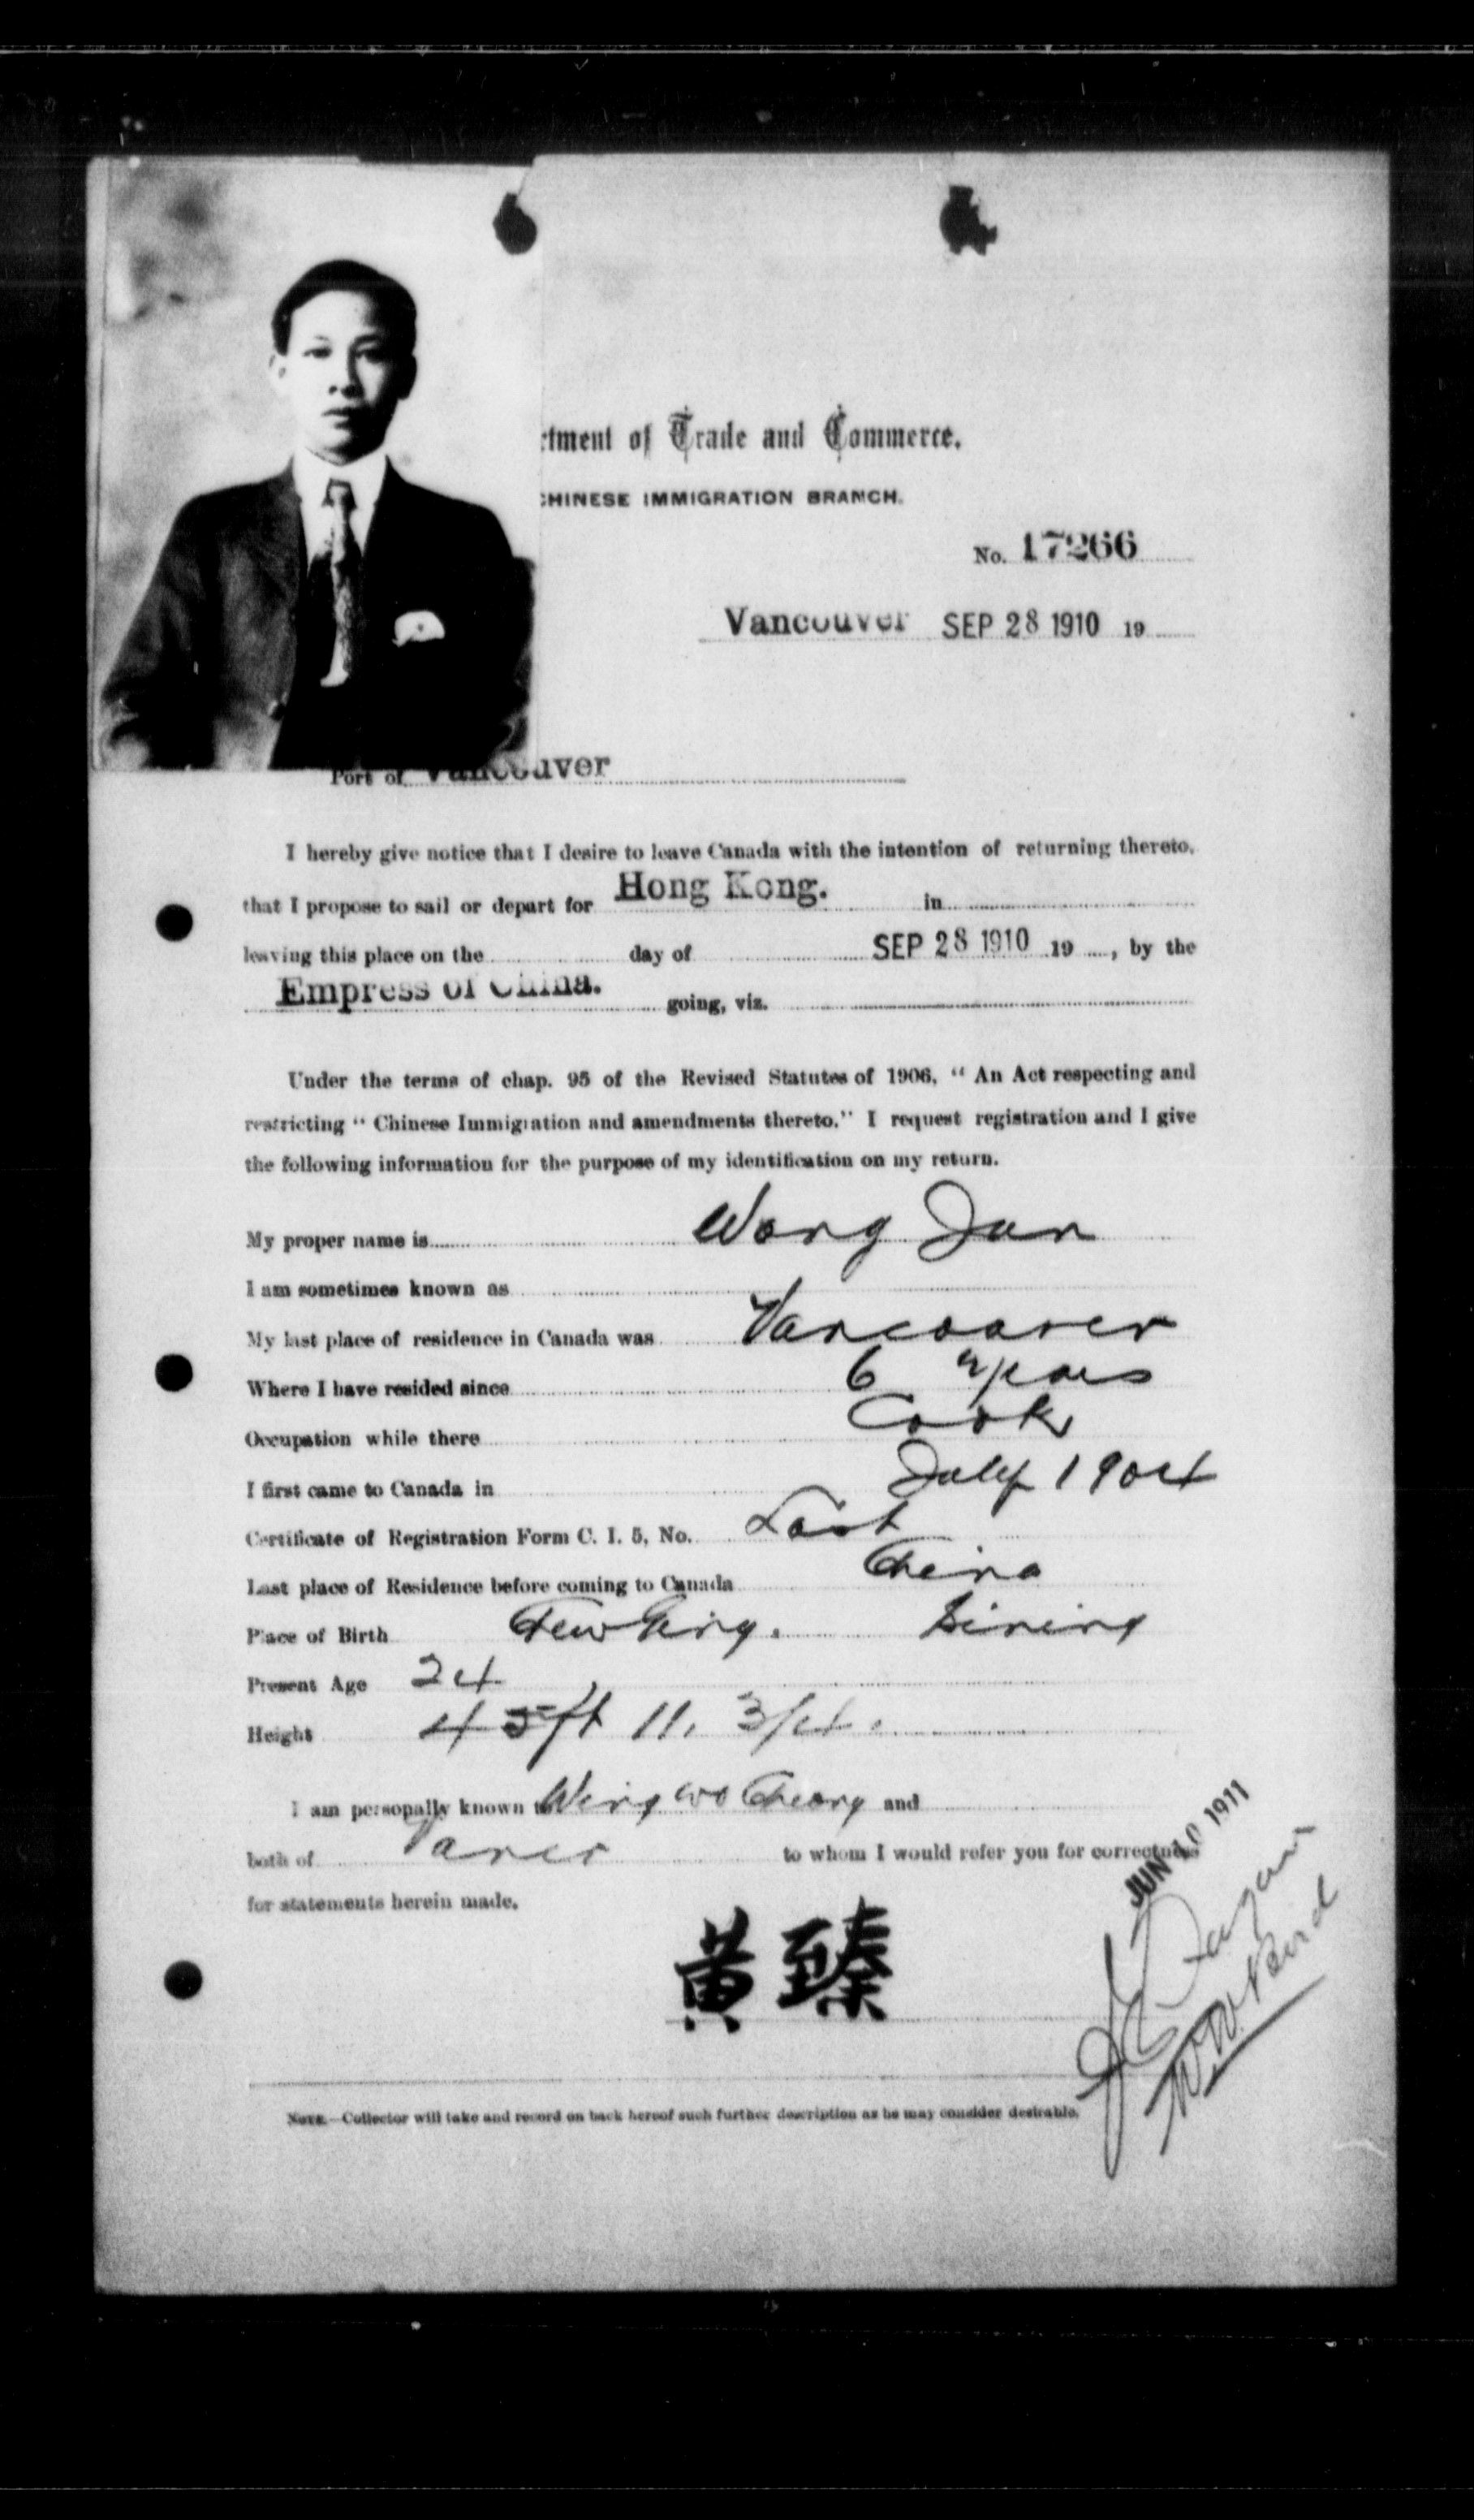 rtment of Trade and Commerce.
CHINESE IMMIGRATION BRANCH.
No. 17266
Vancouver SEP 28 1910 19
Port of Vancouver
I hereby give notice that I desire to leave Canada with the intention of returning thereto,
that I propose to sail or depart for Hong Kong. in
leaving this place on the day of SEP 28 1910 19 , by the
Empress of China. going, viz.
Under the terms of chap. 95 of the Revised Statutes of 1906, “ An Act respecting and
restricting “ Chinese Immigration and amendments thereto.” I request registration and I give
the following information for the purpose of my identification on my return.
My proper name is Wong Jun
I am sometimes known as
My last place of residence in Canada was Vancouver
Where I have resided since 6 years
Occupation while there Cook
I first came to Canada in July 1904
Certificate of Registration Form C. I. 5, No. Lost
Last place of Residence before coming to Canada China
Place of Birth Sining
Present Age 24
Height 4 5ft 11. 3/4.
I am personally known to Wing Wo Cheong and
both of Vancr to whom I would refer you for correctness
for statements herein made.
JUN 10 1911
黃臻
NOTE.—Collector will take and record on back hereof such further description as he may consider desirable.